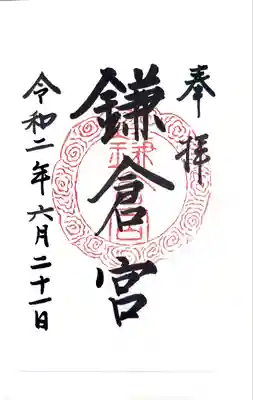 奉拝
鎌倉宮
令和二年六月二十一日